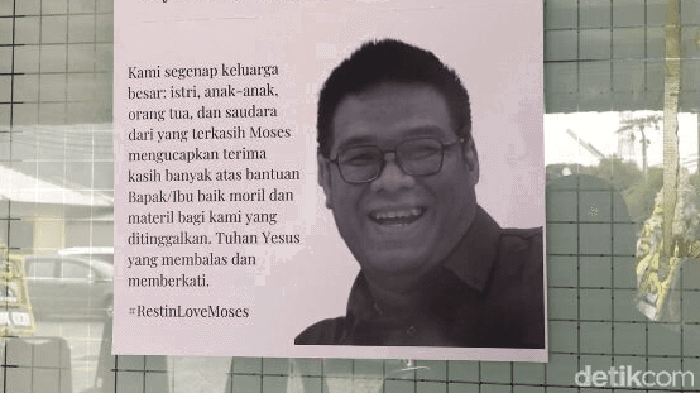 Kami segenap keluarga
besar: istri, anak-anak,
orang tua, dan saudara
dari yang terkasih Moses
mengucapkan terima
kasih banyak atas bantuan
Bapak/Ibu baik moril dan
materil bagi kami yang
ditinggalkan. Tuhan Yesus
yang membalas dan
memberkati.
#RestinLoveMoses
detikcom